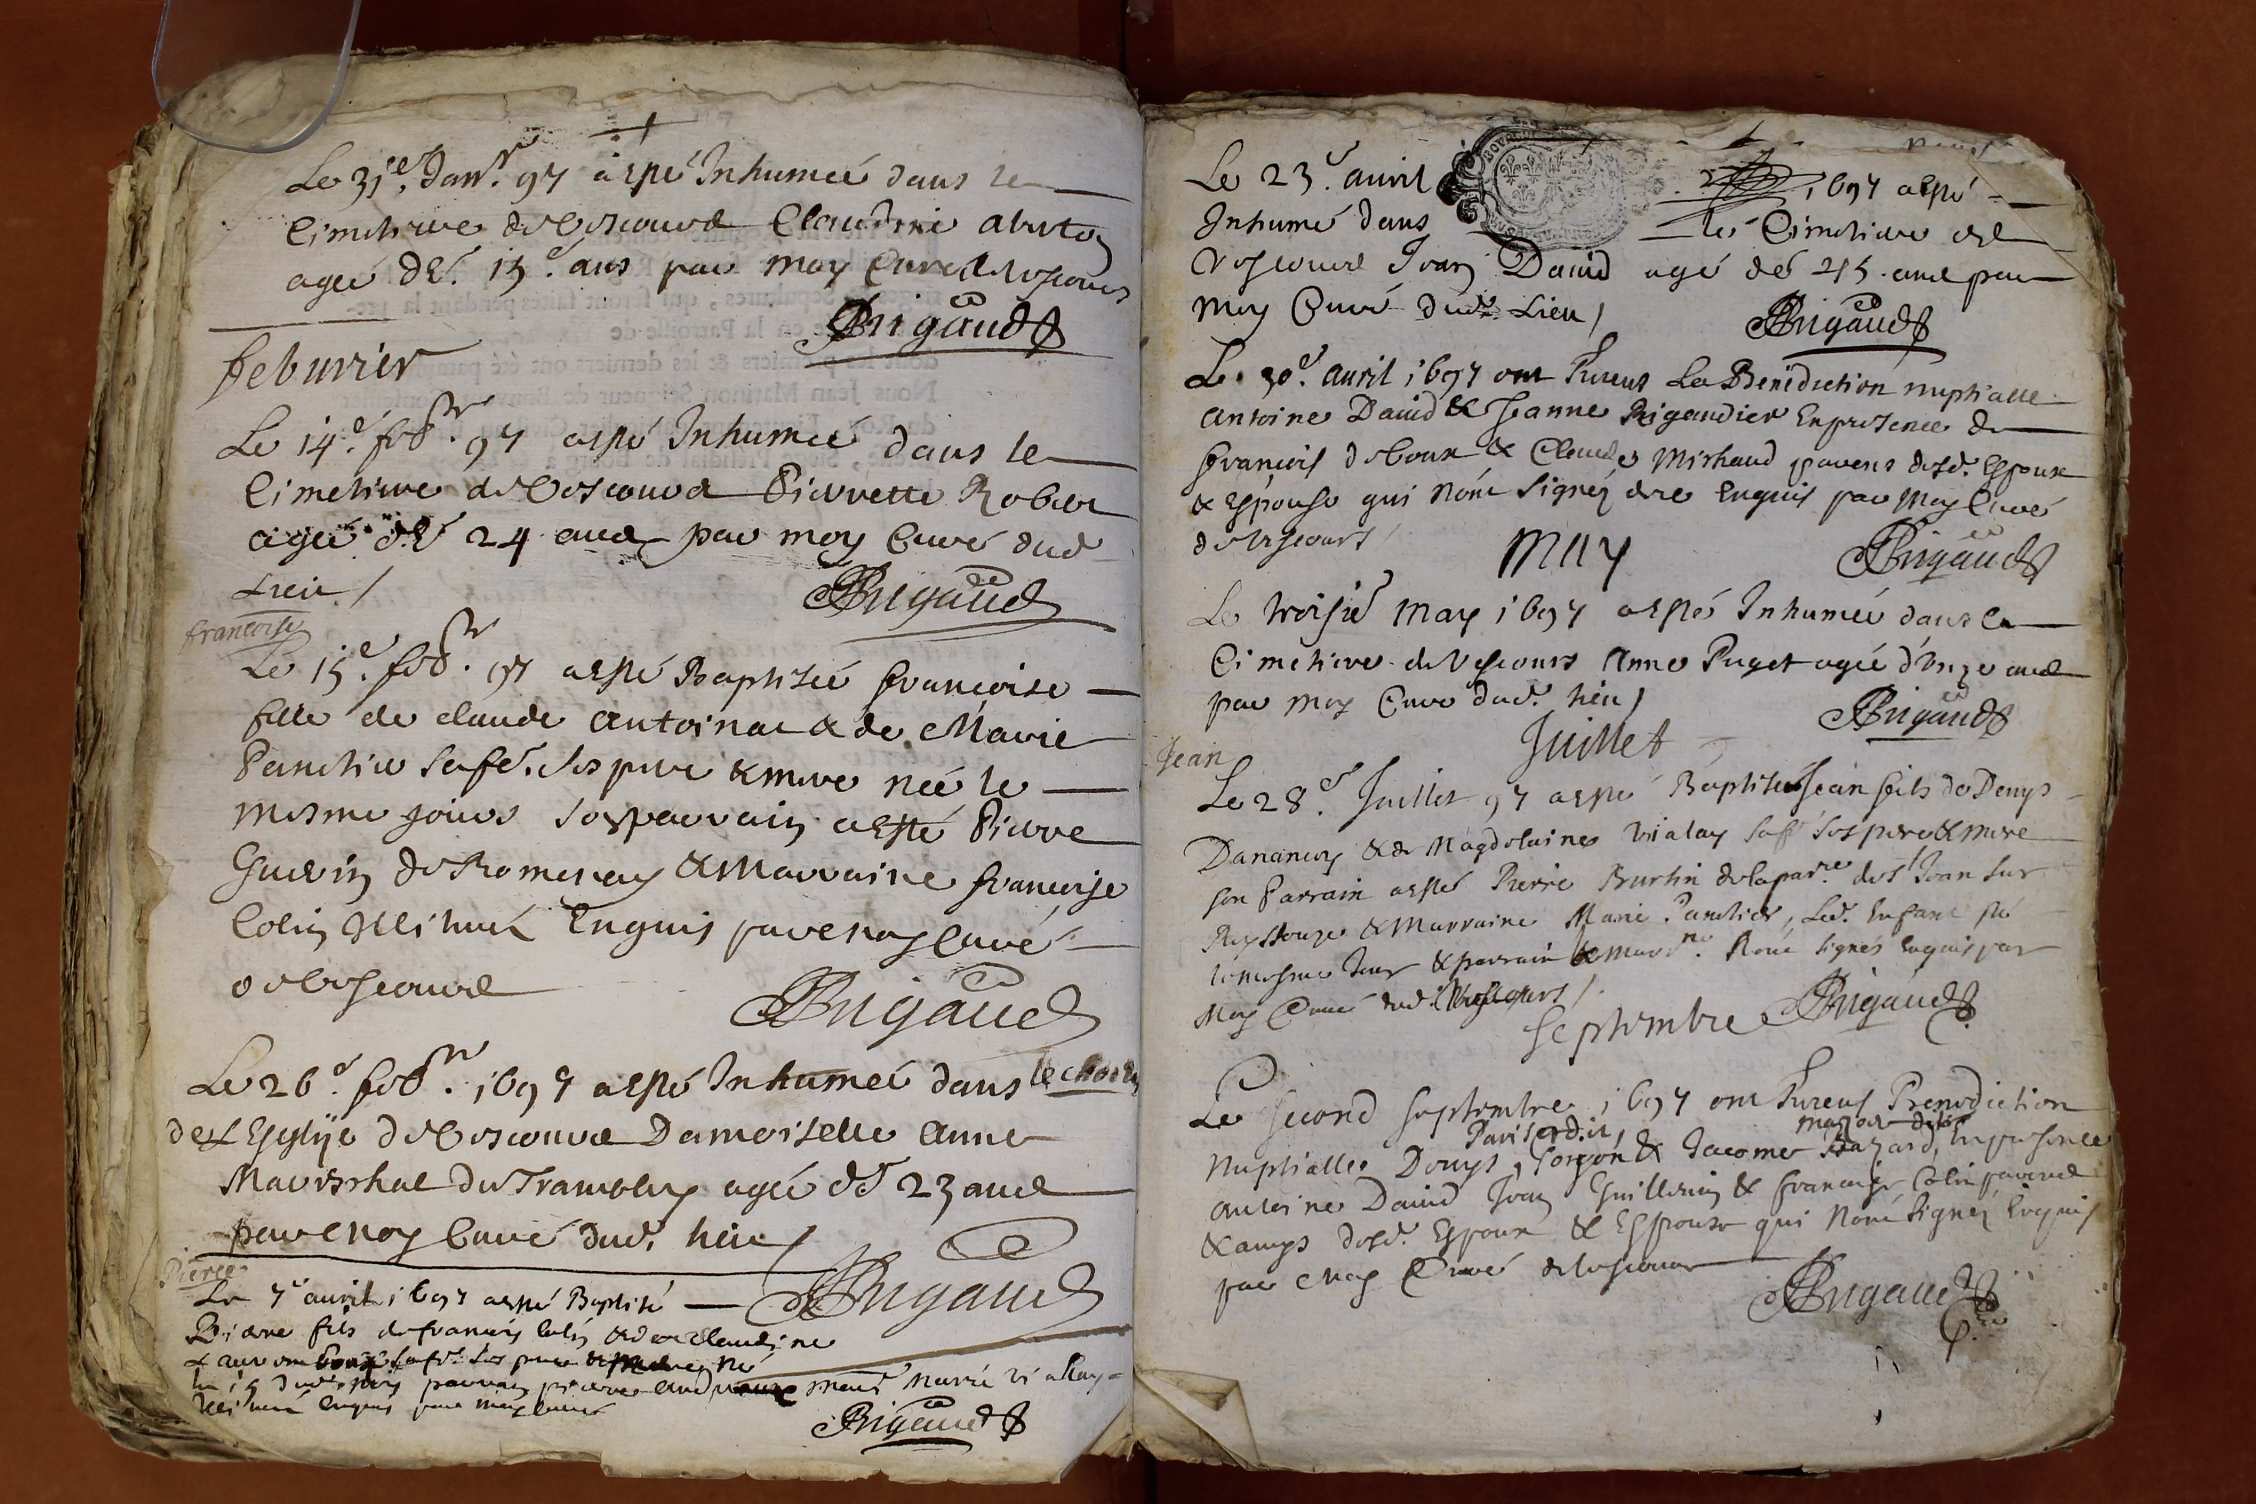 Le 31e. Janr. 97 a esté Inhumeé dans le
Cimetiere de Vescours Claudine
ageé dé. 15e. ans par moy Curé de Vescours
Brigaud
februrier
Le 14e. febr. 97 a esté Inhumeé dans le
Cimetiere de Vescours Pierrette Rober
ageé dé 24 ans par moy Curé dud
Lieu /
Brigaud
francoise
Le 15e. febr. 97 a esté Baptiseé francoise
fille de claude Antoinat & de Marie
Panetier sa fe. ses pere & mere neé le
mesme jour son parrain a esté Pierre
Guerin de Romenay & Marraine francoise
Colin Enquis par moy Curé
de Vescours
Brigaud
Le 26e. febr. 1697 a esté Inhumeé dans le choeur
de L'Esglise de Vescours Damoiselle Anne
Mareschal du Tramblay ageé dé 23 ans
par moy Curé dud. lieu /
Brigaud
Pierre
Le 7e avril 1697 a esté Baptisé
Pierre fils de francois Colin & de Claudine
sa fe. ses pere & mere Né
le dud. parrain pierre marr. Marie vialay
Enquis par moy Curé
Brigaud
Le 23.e avril 1697 a esté
Inhumé dans le Cimetiere de
Vescours Jean David agé dé 25 ans par
moy Curé dud. Lieu /
Brigaud
Le 30e. avril 1697 ont Receus La Benediction nuptialle
Antoine David & Jeanne Rigaudier En presence de
francois deboux & Claude Mishaud parens desd. Espoux
& Espouse qui nont signéz Enquis par Moy Curé
de Vescours /
Brigaud
MAY
Le troisie May 1697 a esté Inhumeé dans le
Cimetiere de Vescours Anne Puget ageé d'onze ans
par moy Curé dud. lieu /
Brigaud
Juillet
Jean
Le 28e. Juillet 97 a esté Baptisé Jean fils de Denys
Danancy & de Magdelaine vialay sa fe ses pere & mere
son Parrain a esté Pierre Burtin de la parre. de St Jean sur
Reyssouze & Marraine Marie Panetier, Led. Enfant né
le mesme Jour & parrain & marrne. Nont signés Enquis par
Moy Curé dud. Vescours /
Brigaud
Septembre
Le second septembre 1697 ont Receus Benediction
Nuptialle Denys Gorjon & Jacome Bazard, En presence
Antoine David Jean Guillemin & francois Colin parens
& amys desd. Espoux & Espouse qui Nont signéz Enquis
par Moy Curé de Vescours
Brigaud